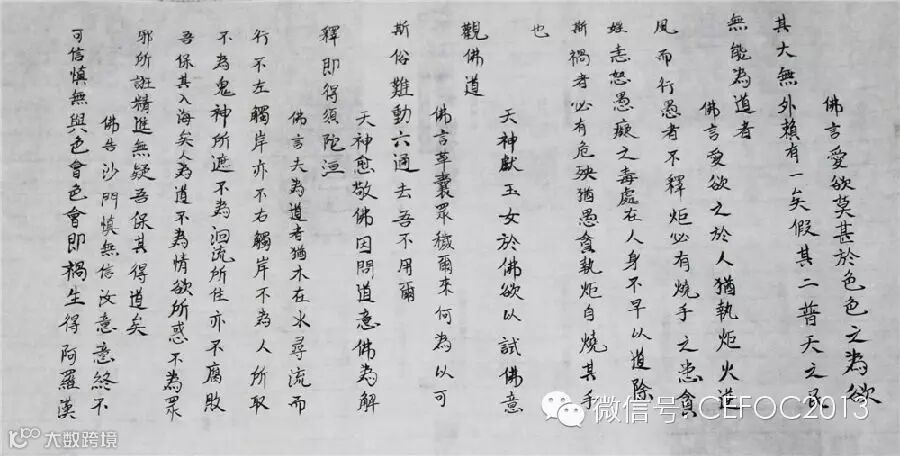 佛言愛欲莫甚於色色之為欲
其大無外賴有一矣假其二普天之民
無能為道者
佛言愛欲之於人猶執炬火逆
風而行愚者不釋炬必有燒手之患貪
婬恚怒愚癡之毒處在人身不早以道除
斯禍者必有危殃猶愚貪執炬自燒其手
也
天神獻玉女於佛欲以試佛意
觀佛道
佛言革囊眾穢爾來何為以可
斯俗難動六通去吾不用爾
天神愈敬佛因問道意佛為解
釋即得須陀洹
佛言夫為道者猶木在水尋流而
行不左觸岸亦不右觸岸不為人所取
不為鬼神所遮不為洄流所住亦不腐敗
吾保其入海矣人為道不為情欲所惑不為眾
邪所誑精進無疑吾保其得道矣
佛告沙門慎無信汝意意終不
可信慎無與色會色會即禍生得阿羅漢
微信号:CEFOC2013
大数跨境